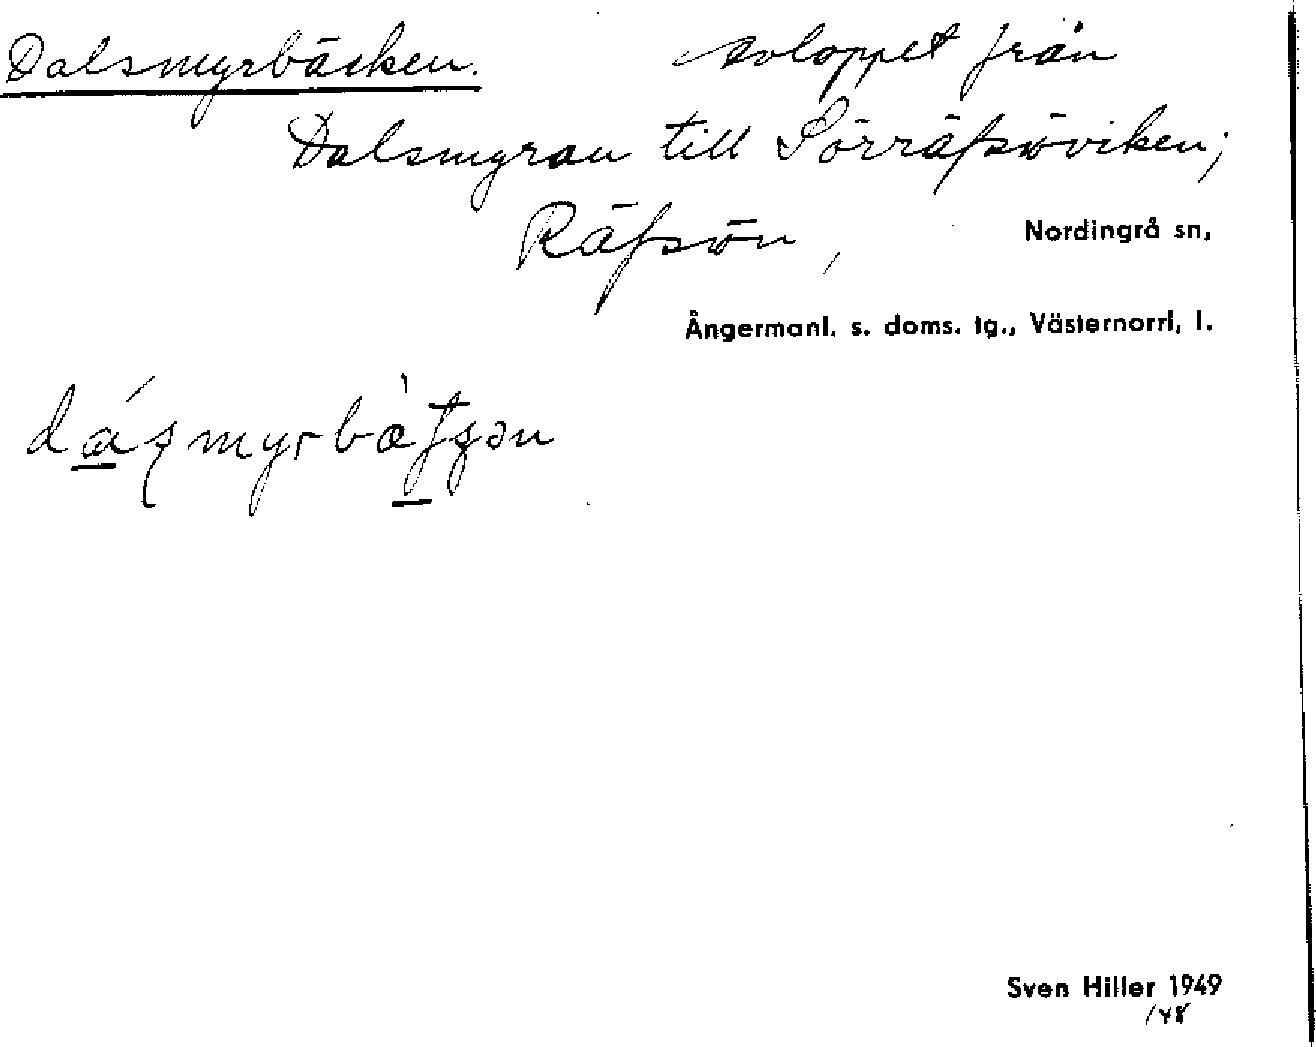 Dalsmyrbäcken. avloppet från
Dalsmyran till Sörräfsöviken;
Räfsön, Nordingrå sn,
Ångermanl. s. doms. tg., Västernorrl, l.
Sven Hiller 1949
/48